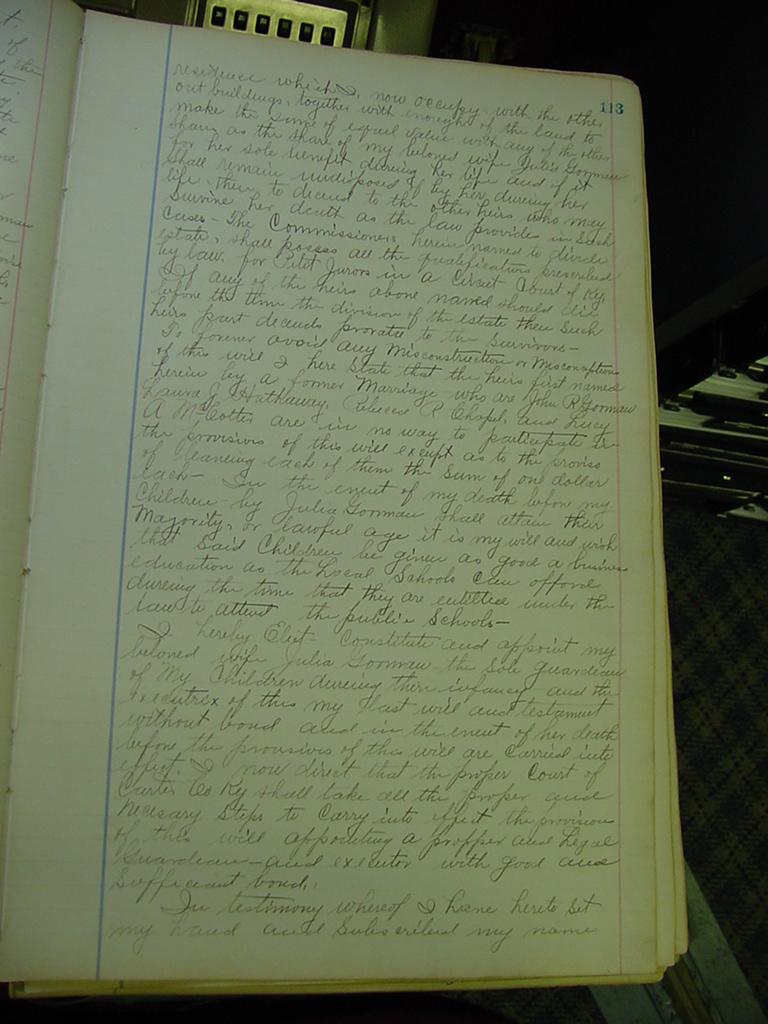 113
residence which I now occupy with the other
out buildings, together with enough of the land to
make the same of equal value with any of the other
shares as the share of my beloved wife Julia Gorman
for her sole benefit dureing her life and if it
shall remain undisposed of by her dureing her
life then to decend to the other heirs who may
survive her death as the law provide in such
Cases - The Commissioners herein named to divide
estate, shall posses all the qualifications prescribed
by law for Petit Jurors in a Circuit Court of Ky.
If any of the heirs above named should die
before the time the division of the estate then such
heirs part decends prorate to the survivors -
To forever avoid any Misconstruction or Misconseptions
of this will I here State that the heirs first named
herein by a former Marriage who are John R Gorman
Laura J. Hathaway, Rebecca R Chapel, and Lucy
A McCotter are in no way to participate in
the provisions of this will except as to the proviso
of leaveing each of them the Sum of one dollar
Each - In the event of my death before my
Children - by Julia Gorman shall attain their
Majority, or lawful age it is my will and wish
that Said Children be given as good a business
education as the Local Schools can afford
dureing the time that they are entitled under the
law to attend the public Schools -
I hereby Elect - Constitute and appoint my
beloved wife Julia Gorman the Sole guardian
of My Children dureing their infancy and the
executrix of this my last will and testament
without bond and in the event of her death
before the provisions of this will are carried into
effect. I now direct that the proper Court of
Carter Co Ky shall take all the proper and
Necesary Steps to Carry into effect the provision
of this will appointing a propper and Legal
Guardean - and executor with good and
Sufficeant bond.
In testimony whereof I have hereto Set
my hand and Subscribed my name